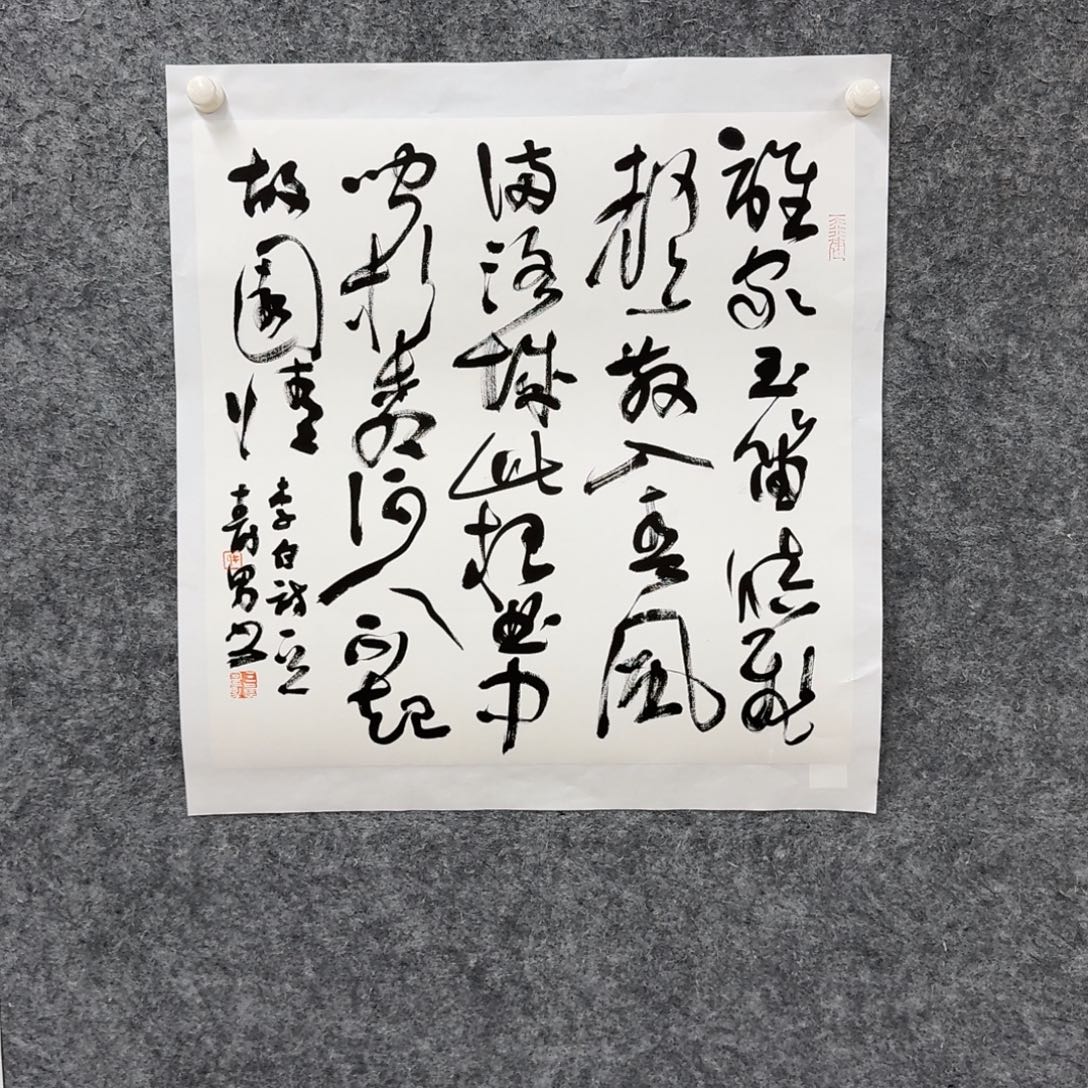 誰家玉笛暗飛
聲散入春風
滿洛城此夜曲中
聞折柳何人不起
故園情
李白詩
壽男書